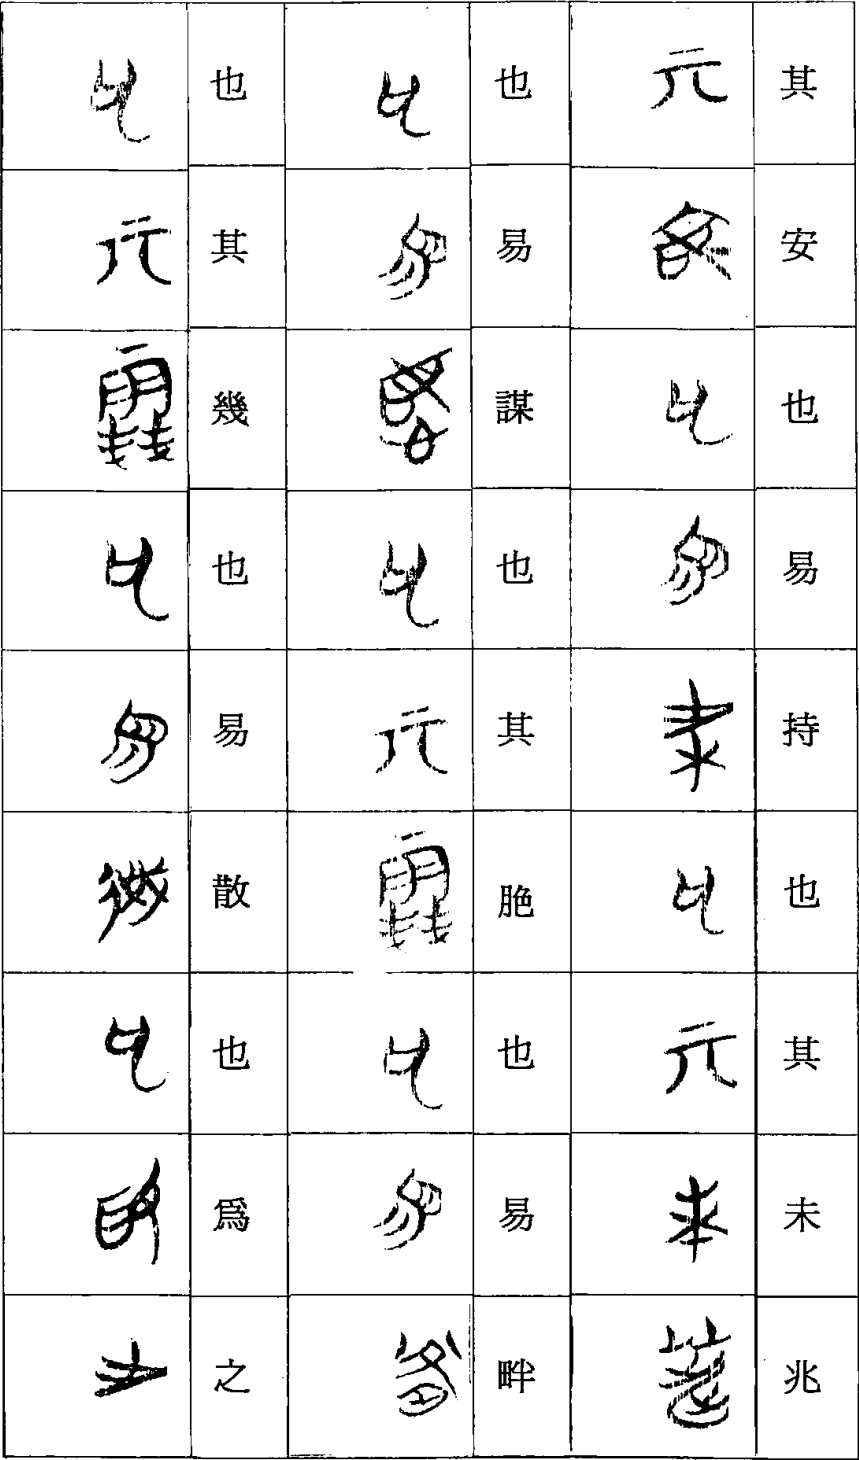 其安也易持也其未兆
也易謀也其脃也易畔
也其幾也易散也爲之